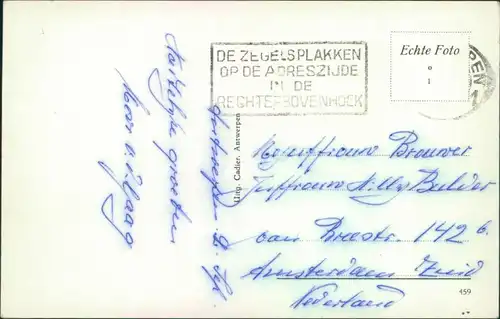 DE ZEGELS PLAKKEN
OP DE ADRESZIJDE
IN DE
RECHTERBOVENHOEK
Echte Foto
0
1
PEN
1
Hartelijke groeten
Imp. Cadier, Antwerpen
Antwerpen
Mejuffrouw Brouwer
Juffrouw Willy Bulder
van Breestr. 142 b.
Amsterdam Zuid
Nederland
459